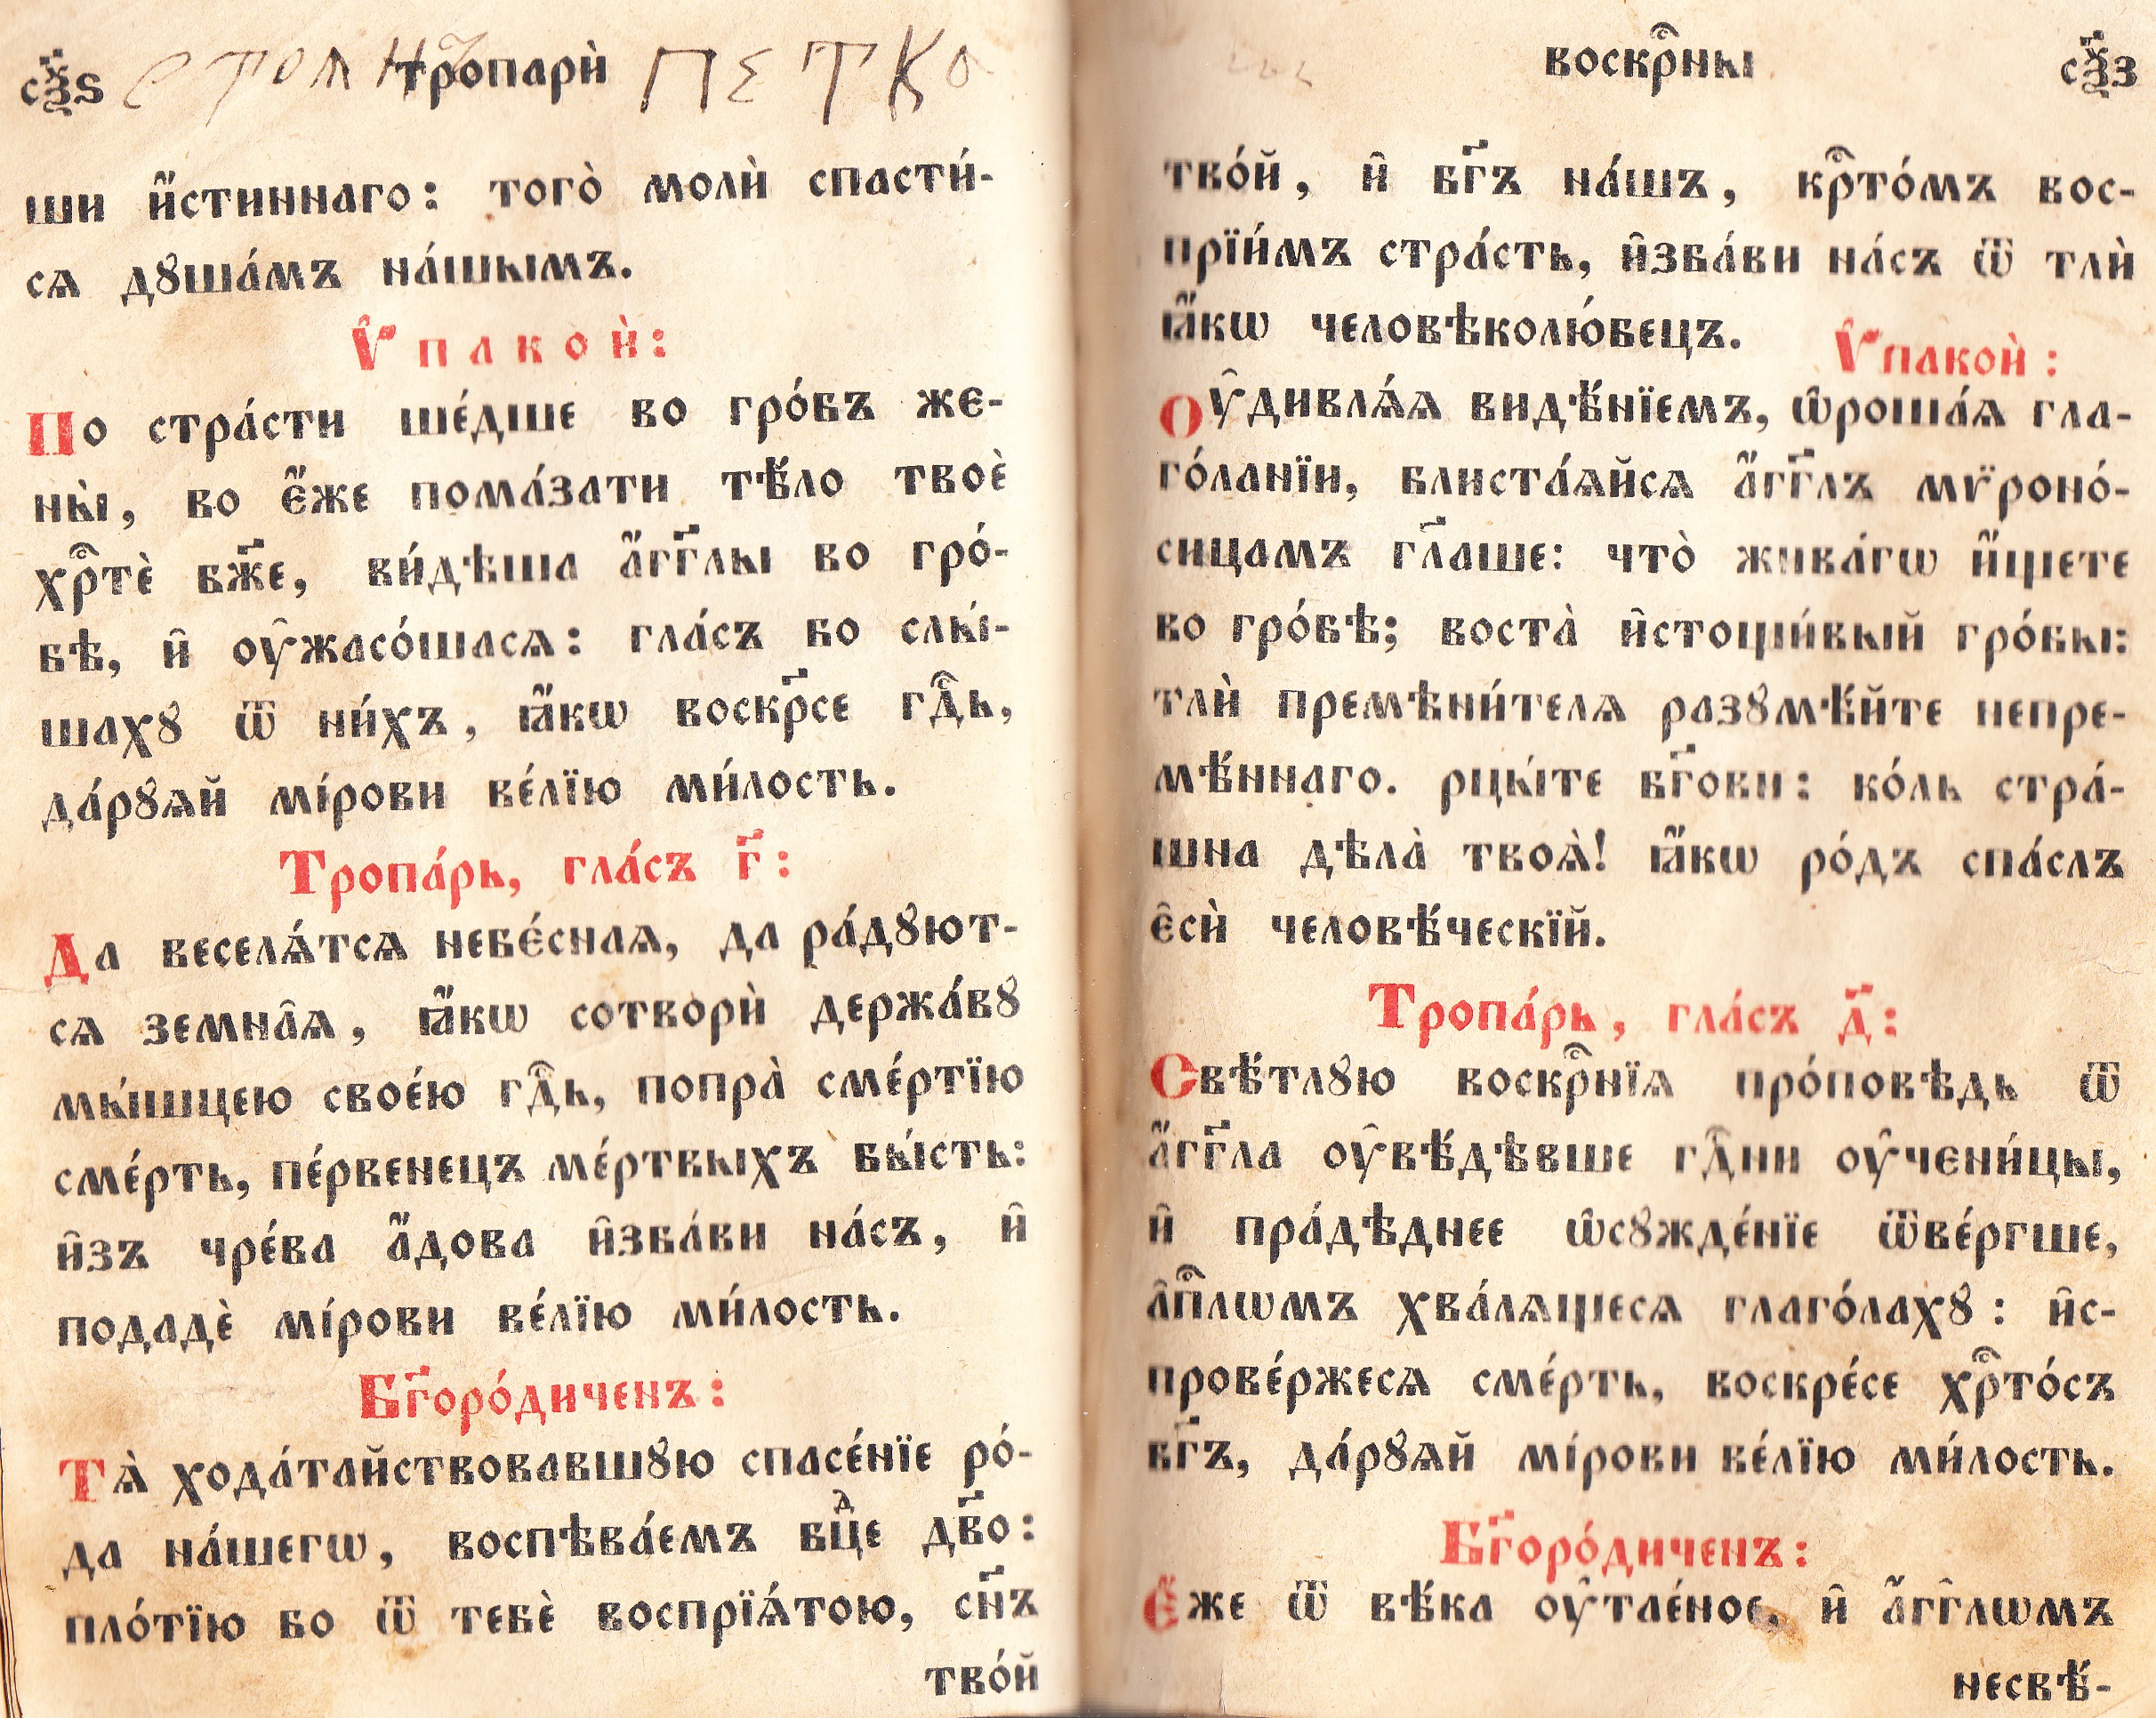 сѯ҃ѕ стоянъ тропарѝ петко
ши и҆́стиннаго: того̀ моли̇̀ спасти́-
ся дꙋша́мъ на́шымъ.
Ѵ҆пакоѝ:
По стра́сти ше́дше во гро́бъ же-
ны̀, во є҆́же пома́зати тѣ́ло твоѐ
хр҇тѐ бж҃е, ви́дѣша а҆́гг҃лы во гро́-
бѣ, и҆ ᲂу҆жасо́шася: гла́съ бо слы́-
шахꙋ ѿ ни́хъ, ꙗ҆́кѡ воскр҃се гдⷭ҇ь,
да́рꙋѧй мі́рови ве́лїю ми́лость.
Тропа́рь, гла́съ г҃:
Да веселѧ́тсѧ небе́снаѧ, да ра́дꙋют-
сѧ земна̑ѧ, ꙗ҆́кѡ сотворѝ держа́вꙋ
мы́шцею свое́ю гдⷭ҇ь, попра̀ сме́ртїю
сме́рть, пе́рвенецъ ме́ртвыхъ бы́сть:
и҆зъ чре́ва а҆́дова и҆зба́ви на́съ, и҆
подадѐ мі́рови ве́лїю ми́лость.
Бг҃оро́диченъ:
Тѧ̀ хода́тайствовавшꙋю спасе́нїе ро́-
да на́шегѡ, воспѣва́емъ бцⷣе дв҃о:
пло́тїю бо ѿ тебѐ воспрїѧ́тою, сн҃ъ
тво́й
воскрⷭ҇ны сѯ҃з
тво́й, и҆ бг҃ъ на́шъ, крⷭ҇то́мъ вос-
прїи́мъ стра́сть, и҆зба́ви на́съ ѿ тлѝ
ꙗ҆́кѡ человѣколю́бецъ.
Ѵ҆пакоѝ:
Ѹ҆дивлѧ́ѧ видѣ́нїемъ, ѡ҆роша́ѧ гла-
го́ланїи, блиста́ѧйсѧ а҆́гг҃лъ мѵ̈роно́-
сицамъ гл҃аше: что̀ жива́гѡ и҆́щете
во гро́бѣ; воста̀ и҆стощи́вый гро́бы:
тлѝ премѣни́телѧ разꙋмѣ́йте непре-
мѣ́ннаго. рцы́те бг҃ови: ко́ль стра́-
шна дѣла̀ твоѧ̀! ꙗ҆́кѡ ро́дъ спа́слъ
є҆сѝ человѣ́ческїй.
Тропа́рь, гла́съ д҃:
Свѣ́тлꙋю воскрⷭ҇нїѧ про́повѣдь ѿ
а҆́гг҃ла ᲂу҆вѣ́дѣвше гдⷭ҇ни ᲂу҆чени́цы,
и҆ пра́дѣднее ѡ҆сꙋжде́нїе ѿве́ргше,
а҆пⷭ҇лѡмъ хва́лѧщесѧ глаго́лахꙋ: и҆с-
прове́ржесѧ сме́рть, воскре́се хрⷭ҇то́съ
бг҃ъ, да́рꙋѧй мі́рови ве́лїю ми́лость.
Бг҃оро́диченъ:
Є҆́же ѿ вѣ́ка ᲂу҆тае́ное, и҆ а҆́гг҃лѡмъ
несвѣ́-